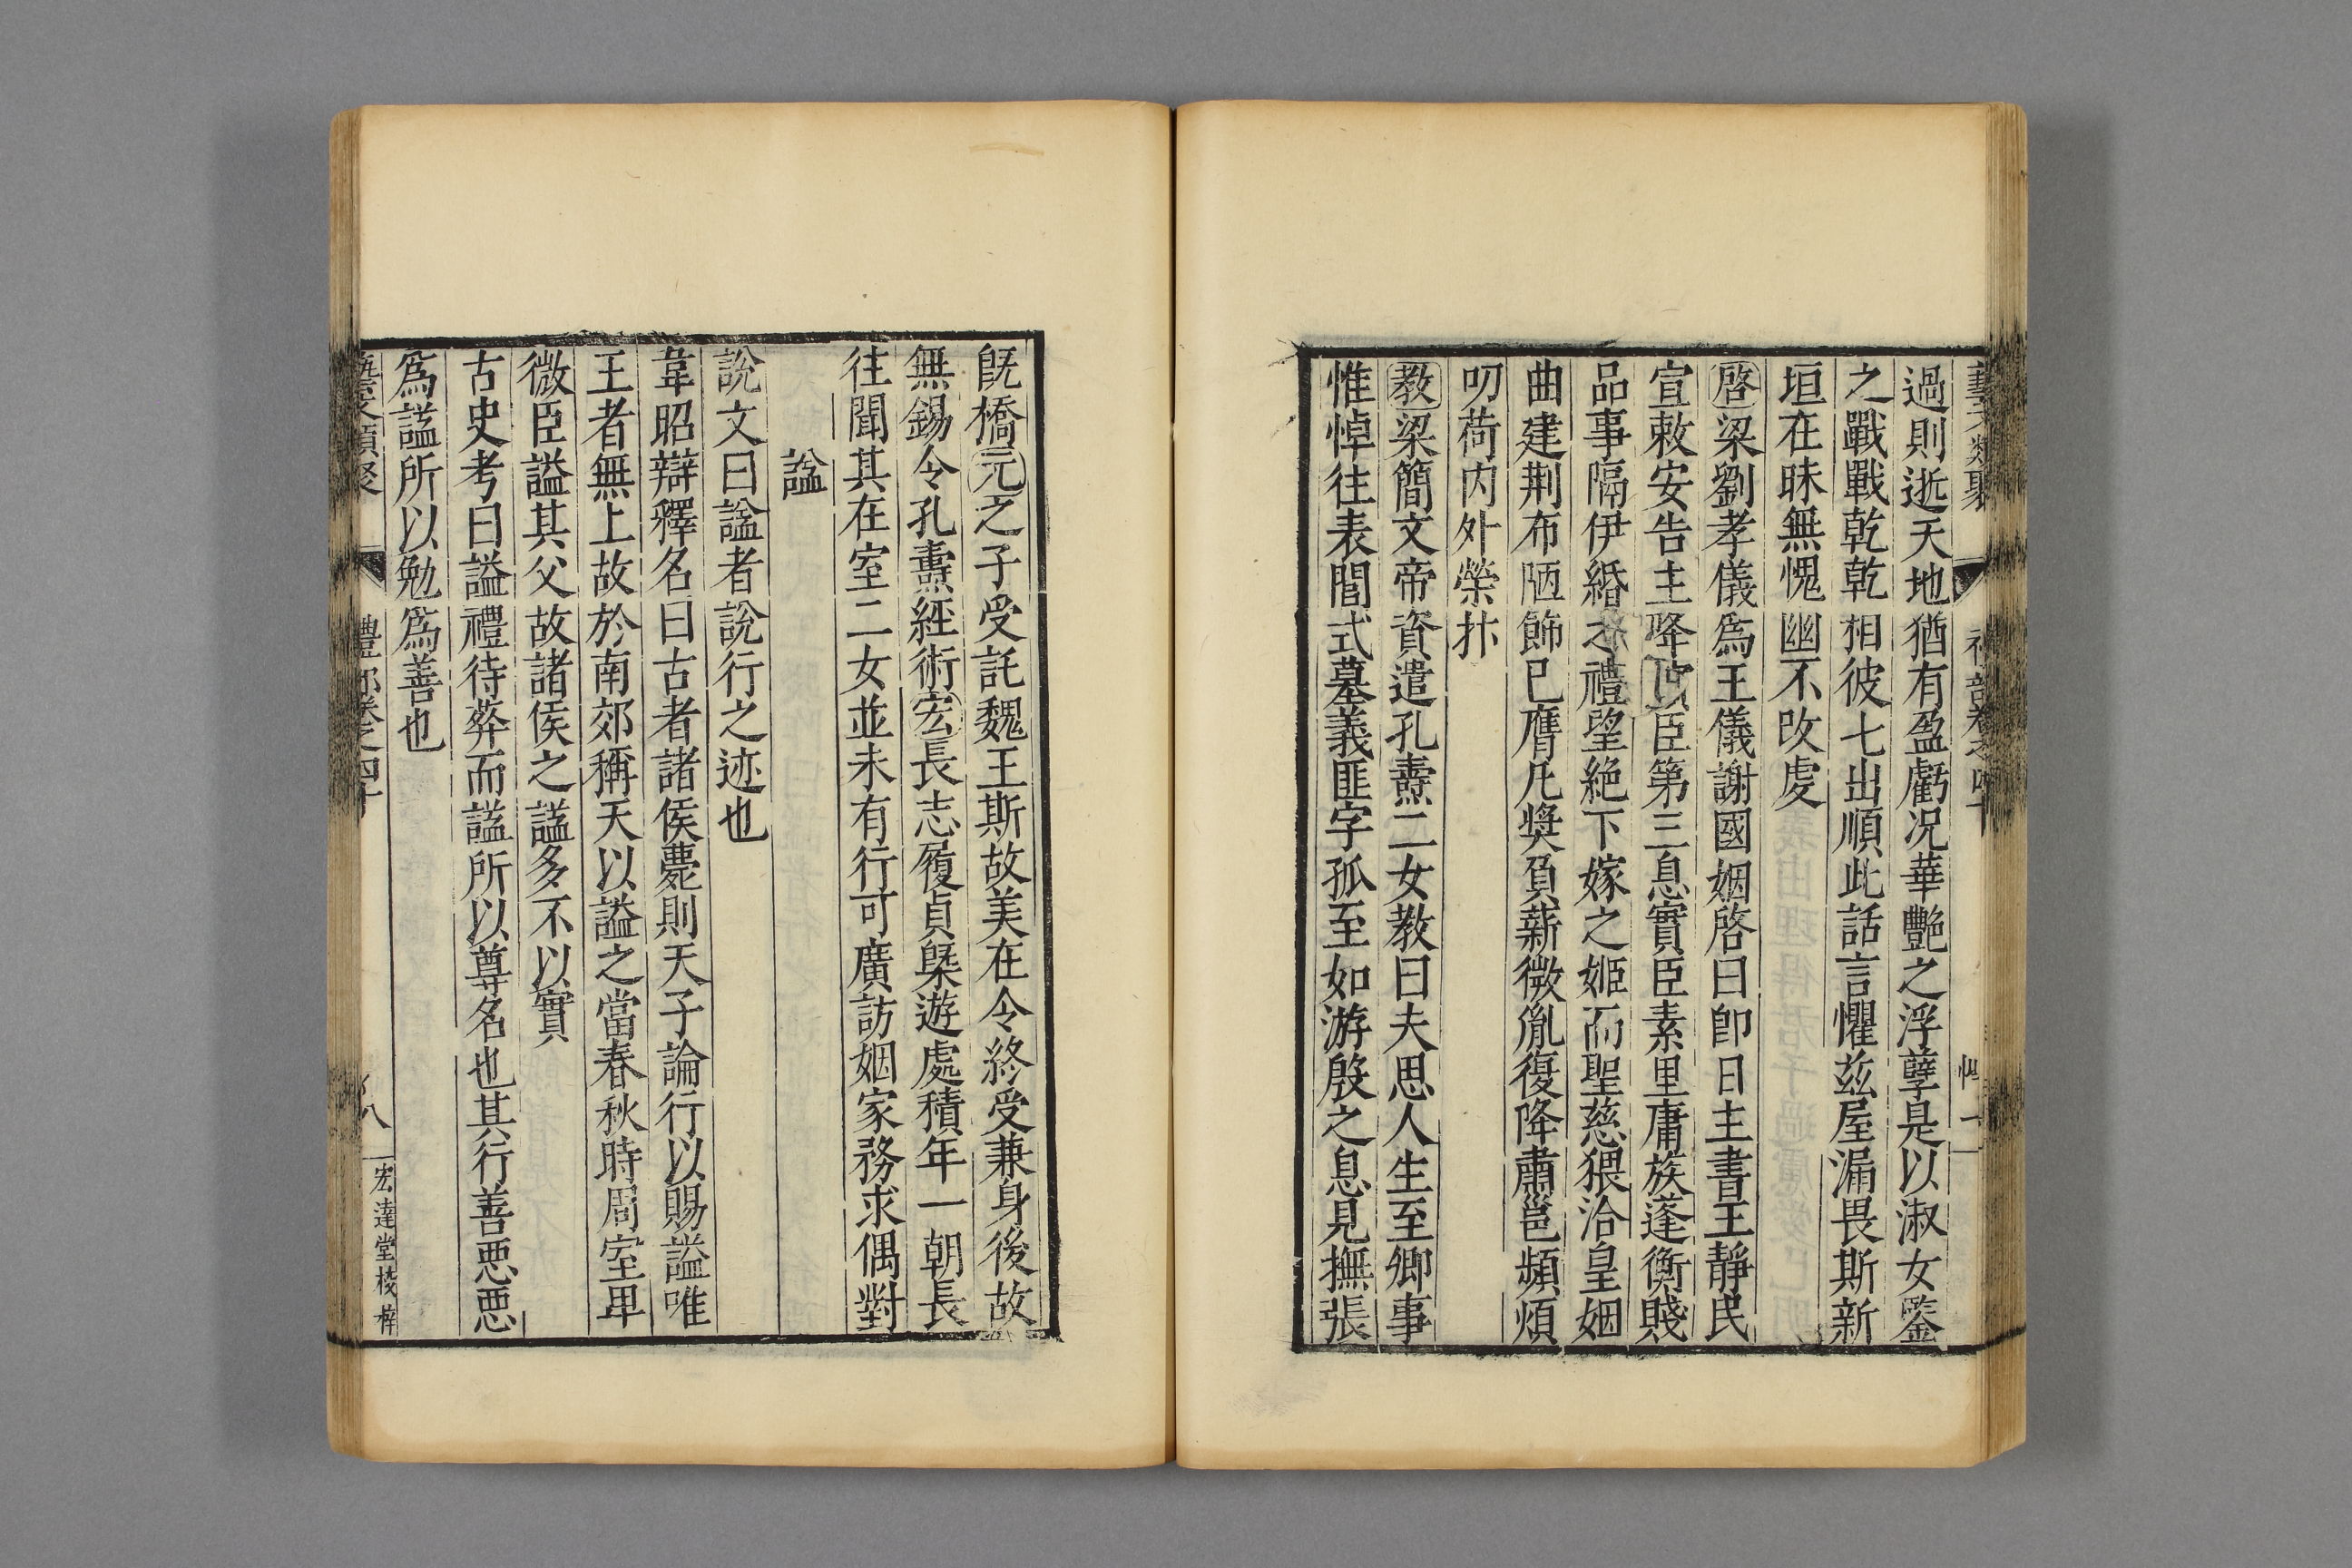 過則逝天地猶有盈虧况華艷之浮孽是以淑女鑒
之戰戰乾乾相彼七出順此話言懼茲屋漏畏斯新
垣在昧無愧幽不改虔
啓梁劉孝儀爲王儀謝國姻啓曰卽日主書王靜民
宣敕安告主降臣第三息實臣素里庸族蓬衡賤
品事隔伊緍之禮望絕下嫁之姬而聖慈猥洽皇姻
曲建荆布陋飾已膺凡奬負薪微胤復降肅邕頻煩
叨荷内外榮抃
教梁簡文帝資遣孔燾二女教曰夫思人生至卿事
惟悼往表閭式墓義匪字孤至如游殷之息見撫張
旣橋元之子受託魏王斯故美在令終受兼身後故
無錫令孔燾經術宏長志履貞槩遊處積年一朝長
往聞其在室二女並未有行可廣訪姻家務求偶對
謚
說文曰謚者說行之迹也
韋昭辯釋名曰古者諸侯薨則天子論行以賜謚唯
王者無上故於南郊稱天以謚之當春秋時周室卑
微臣謚其父故諸侯之謚多不以實
古史考曰謚禮待葬而謚所以尊名也其行善惡惡
爲謚所以勉爲善也
藝文類聚 禮部卷之四十 八 宏達堂校梓